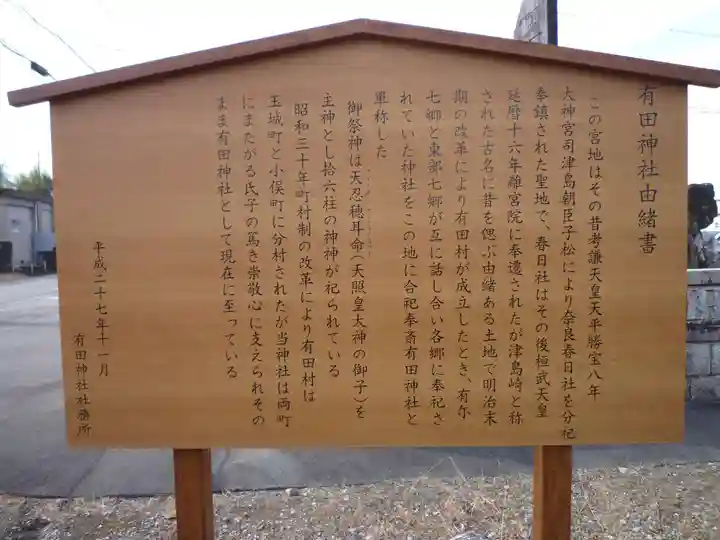 有田神社由緒書
この宮地はその昔考謙天皇天平勝宝八年
大神宮司津島朝臣子松により奈良春日社を分祀
奉鎮された聖地で、春日社はその後桓武天皇
延暦十六年離宮院に奉遷されたが津島崎と称
された古名に昔を偲ぶ由緒ある土地で明治末
期の改革により有田村が成立したとき、有尓
七郷と東部七郷が互に話し合い各郷に奉祀さ
れていた神社をこの地に合祀奉斎有田神社と
単称した
御祭神は天忍穂耳命(天照皇太神の御子)を
主神とし拾六柱の神神が祀られている
昭和三十年町村制の改革により有田村は
玉城町と小俣町に分村されたが当神社は両町
にまたがる氏子の篤き崇敬心に支えられその
まま有田神社として現在に至っている
平成二十七年十一月
有田神社社務所